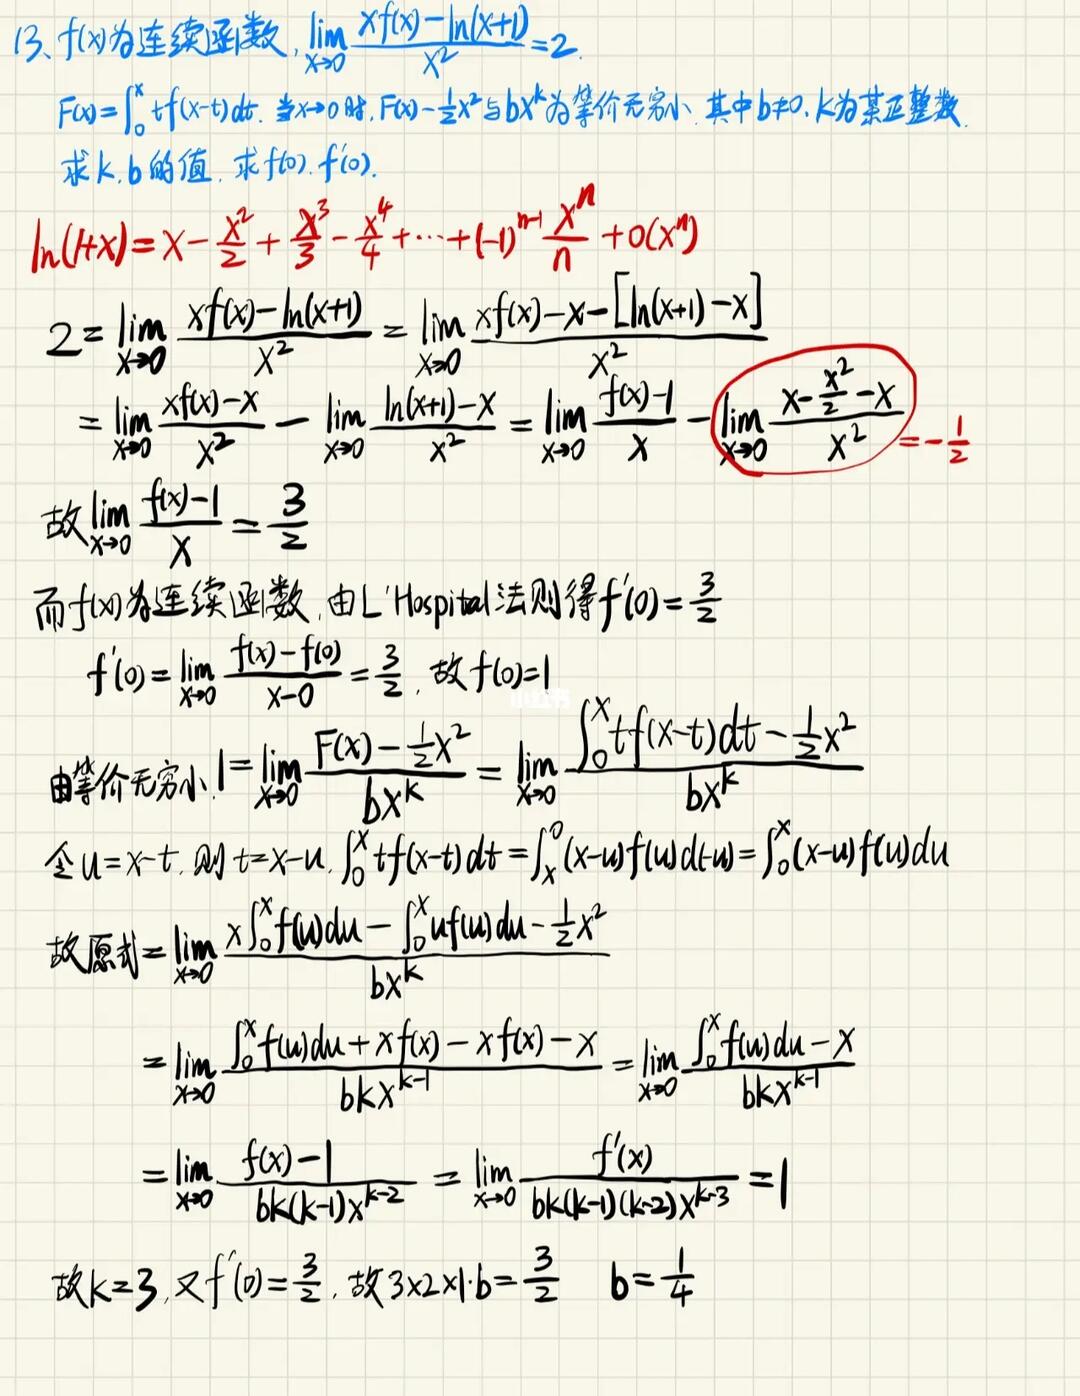 13、f(x)为连续函数, lim x→0 (xf(x)-ln(x+1))/x² = 2.
F(x)=∫₀ˣ tf(x-t)dt. 当x→0时, F(x)-½x²与bxᵏ为等价无穷小, 其中b≠0, k为某正整数.
求k,b的值, 求f(0), f'(0).
ln(1+x)=x-x²/2+x³/3-x⁴/4+…+(-1)ⁿ⁻¹xⁿ/n+o(xⁿ)
2=lim x→0 (xf(x)-ln(x+1))/x² = lim x→0 (xf(x)-x-[ln(x+1)-x])/x²
=lim x→0 (xf(x)-x)/x² - lim x→0 (ln(x+1)-x)/x² = lim x→0 (f(x)-1)/x - lim x→0 (x-x²/2-x)/x² =-1/2
故lim x→0 (f(x)-1)/x = 3/2
而f(x)为连续函数, 由L'Hospital法则得f'(0)=3/2
f'(0)=lim x→0 (f(x)-f(0))/(x-0) = 3/2, 故f(0)=1
小红书
由等价无穷小, 1=lim x→0 (F(x)-½x²)/bxᵏ = lim x→0 (∫₀ˣ tf(x-t)dt-½x²)/bxᵏ
令u=x-t, 则t=x-u, ∫₀ˣ tf(x-t)dt=∫ₓ⁰(x-u)f(u)d(-u)=∫₀ˣ(x-u)f(u)du
故原式=lim x→0 (x∫₀ˣf(u)du-∫₀ˣuf(u)du-½x²)/bxᵏ
=lim x→0 (∫₀ˣf(u)du+xf(x)-xf(x)-x)/bkxᵏ⁻¹ = lim x→0 (∫₀ˣf(u)du-x)/bkxᵏ⁻¹
=lim x→0 (f(x)-1)/bk(k-1)xᵏ⁻² = lim x→0 f'(x)/bk(k-1)(k-2)xᵏ⁻³ =1
故k=3, 又f'(0)=3/2, 故3×2×1·b=3/2 b=1/4